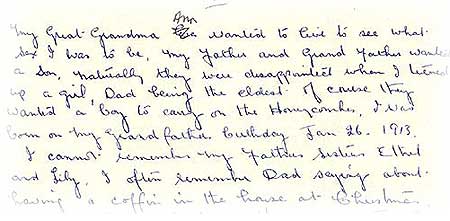 Ann
My Great Grandma wanted to live to see what
sex I was to be, My Father and Grand Father wanted
a son, naturally they were disappointed when I turned
up a girl, Dad being the eldest of course they
wanted a boy to carry on the Honeycombes, I was
born on my Grandfathers birthday Jan 26. 1913.
I cannot remember my Fathers sisters Ethel
and Lily, I often remember Dad saying about
having a coffin in the house at Christmas